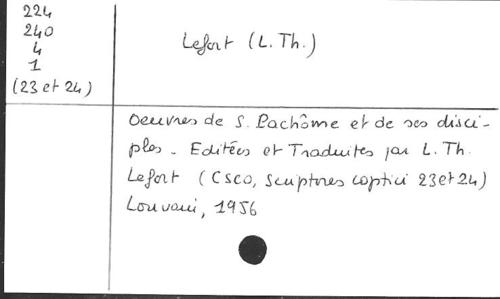 224
240
4
1
(23 et 24)
Lefort (L. Th.)
Oeuvres de S. Pachôme et de ses disci-
ples. Editées et Traduites par L. Th.
Lefort (CSCO, Scriptores coptici 23 et 24)
Louvain, 1956